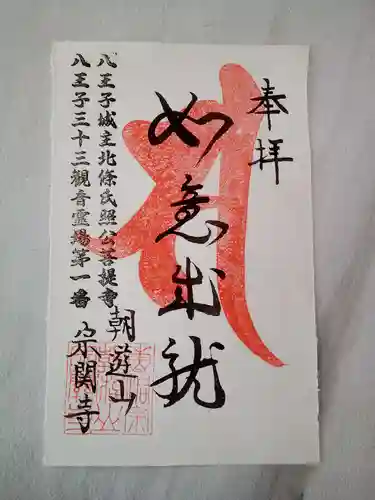 奉拝
如意成就
八王子城主北條氏照公菩提寺
八王子三十三觀音霊場第一番
朝遊山
宗関寺